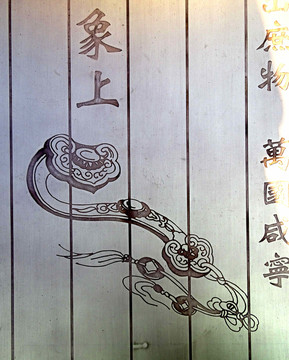 出庶物 萬國咸寧
象上